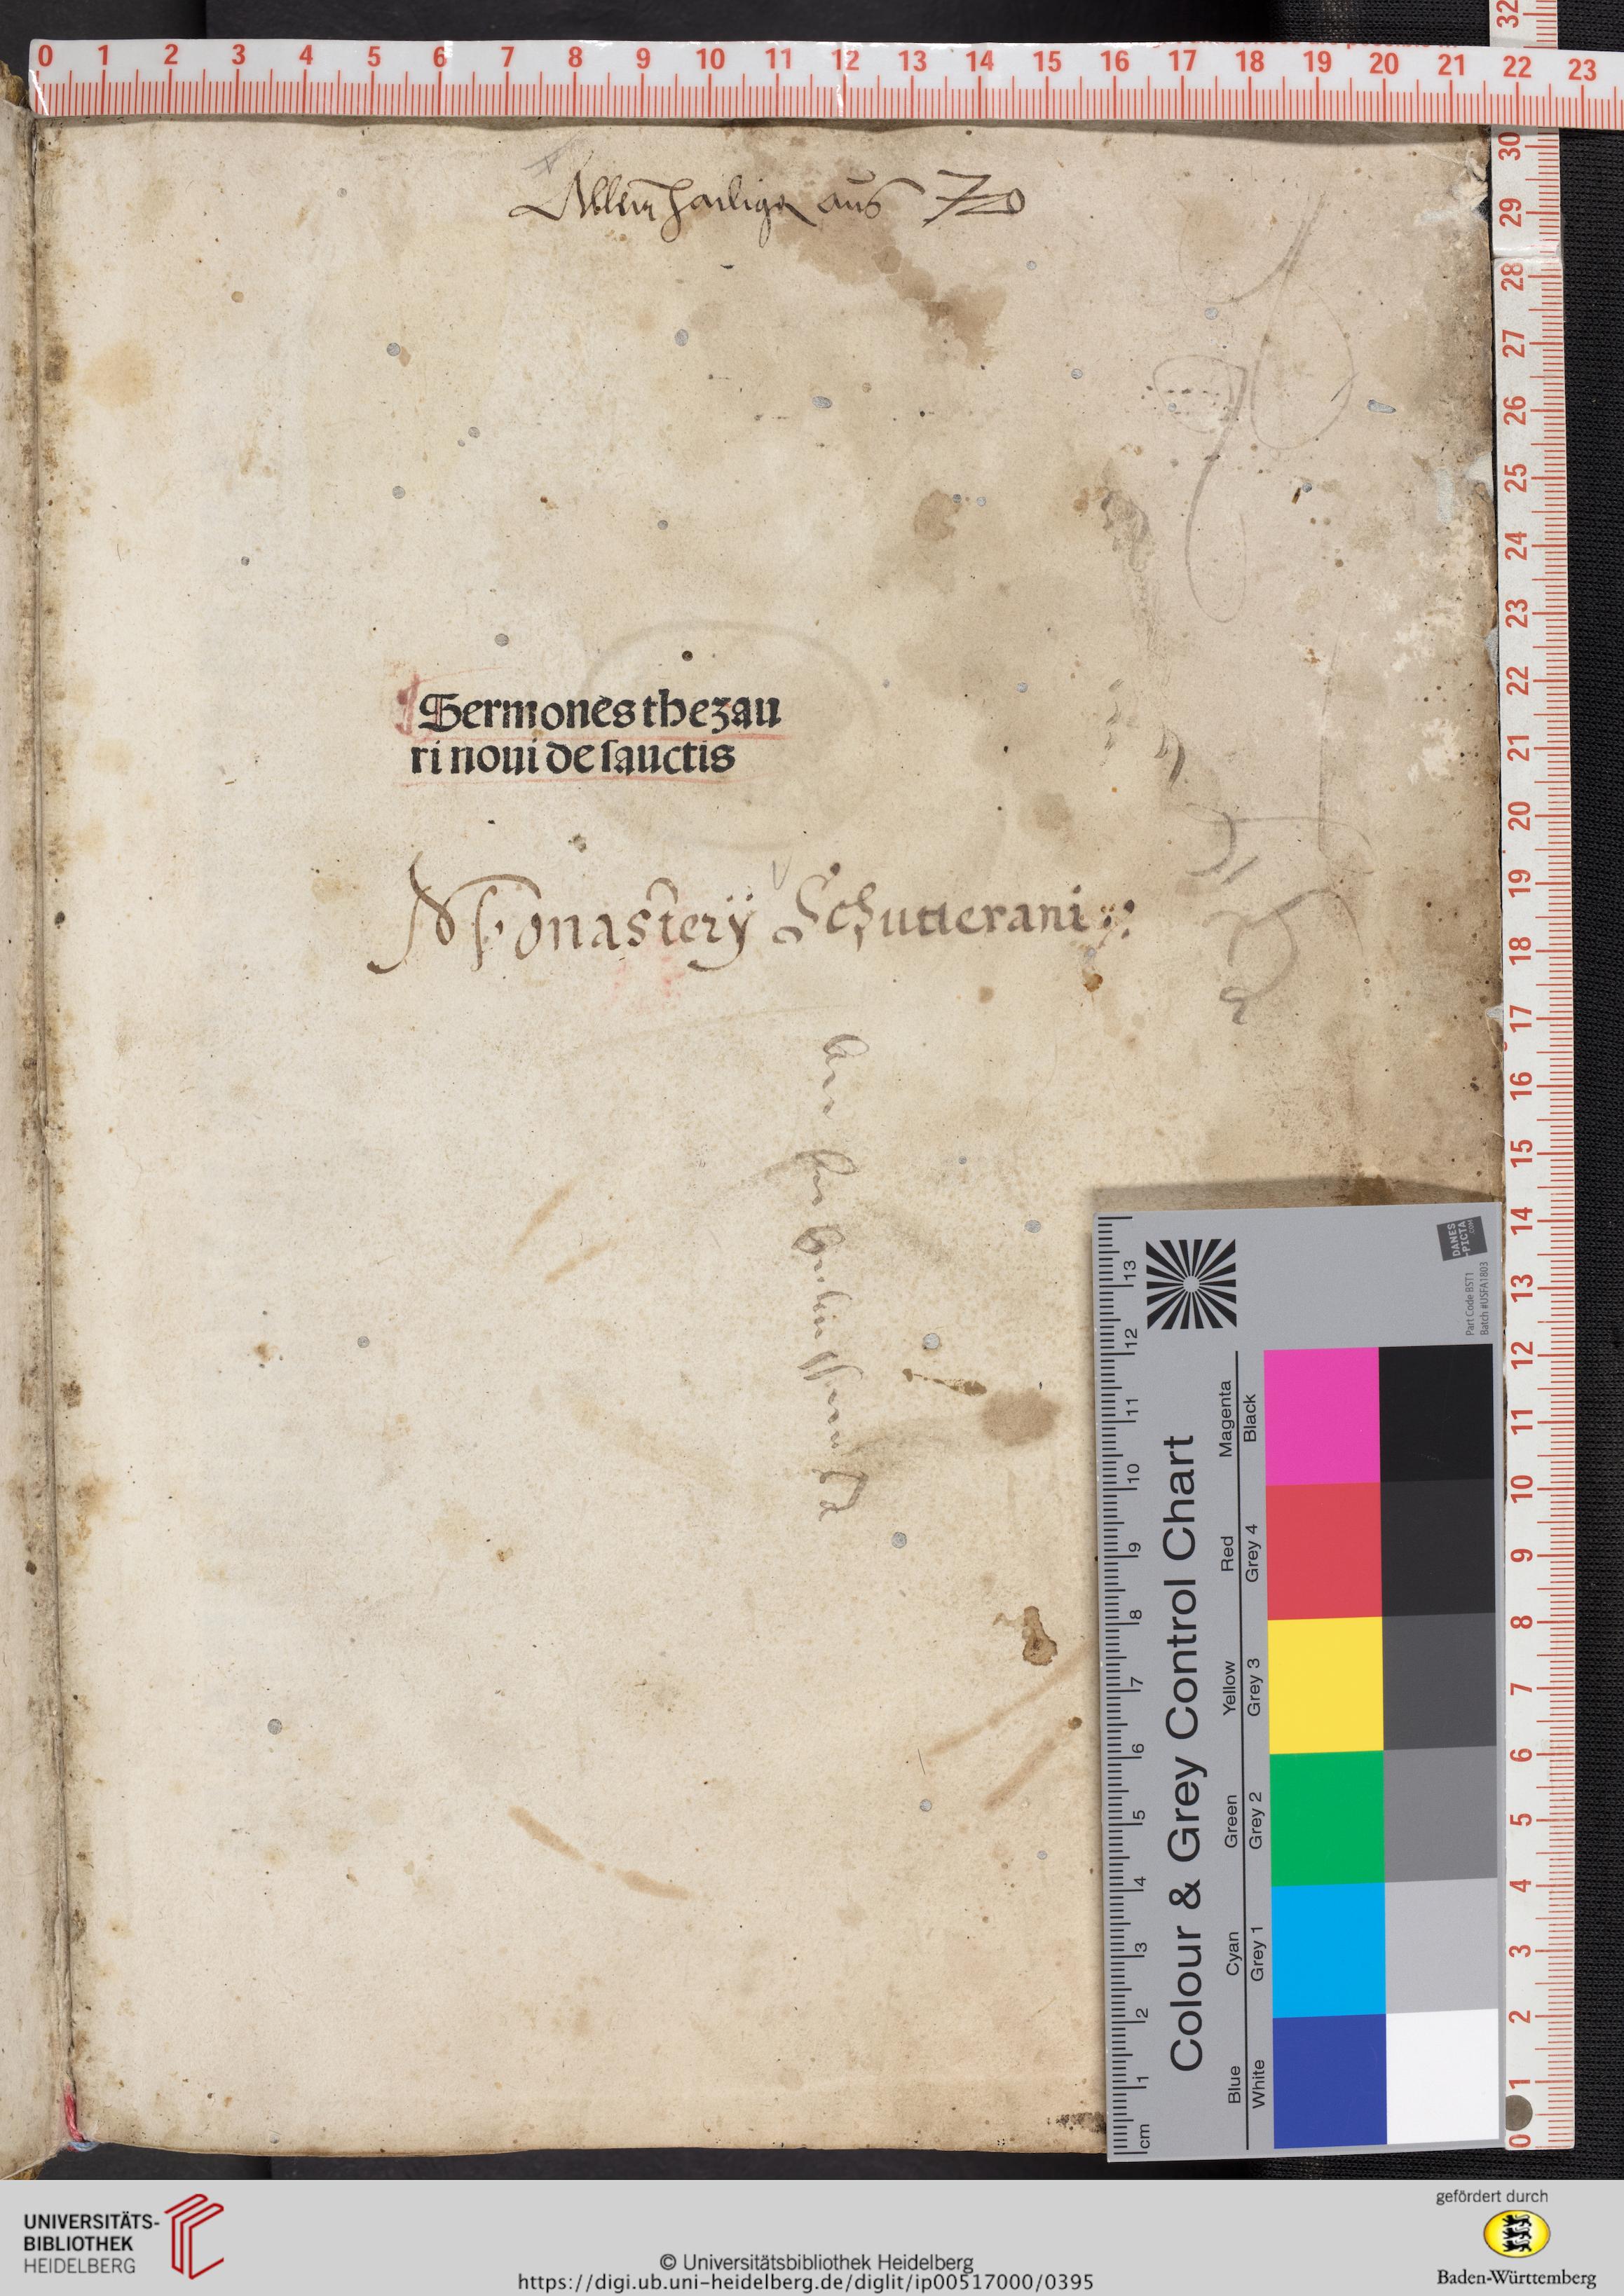 0 1 2 3 4 5 6 7 8 9 10 11 12 13 14 15 16 17 18 19 20 21 22 23
aus
Sermones thezau
ri noui de sanctis
Monasterÿ Schutterani
32 30 29 28 27 26 25 24 23 22 21 20 19 18 17 16 15 14 13 12 11 10 9 8 7 6 5 4 3 2 1 0
DANES
-PICTA
.COM
Part Code BST1
Batch #USFA1803
Colour & Grey Control Chart
Blue Cyan Green Yellow Red Magenta
White Grey 1 Grey 2 Grey 3 Grey 4 Black
cm 1 2 3 4 5 6 7 8 9 10 11 12 13
UNIVERSITÄTS-
BIBLIOTHEK
HEIDELBERG
© Universitätsbibliothek Heidelberg
https://digi.ub.uni-heidelberg.de/diglit/ip00517000/0395
gefördert durch
Baden-Württemberg